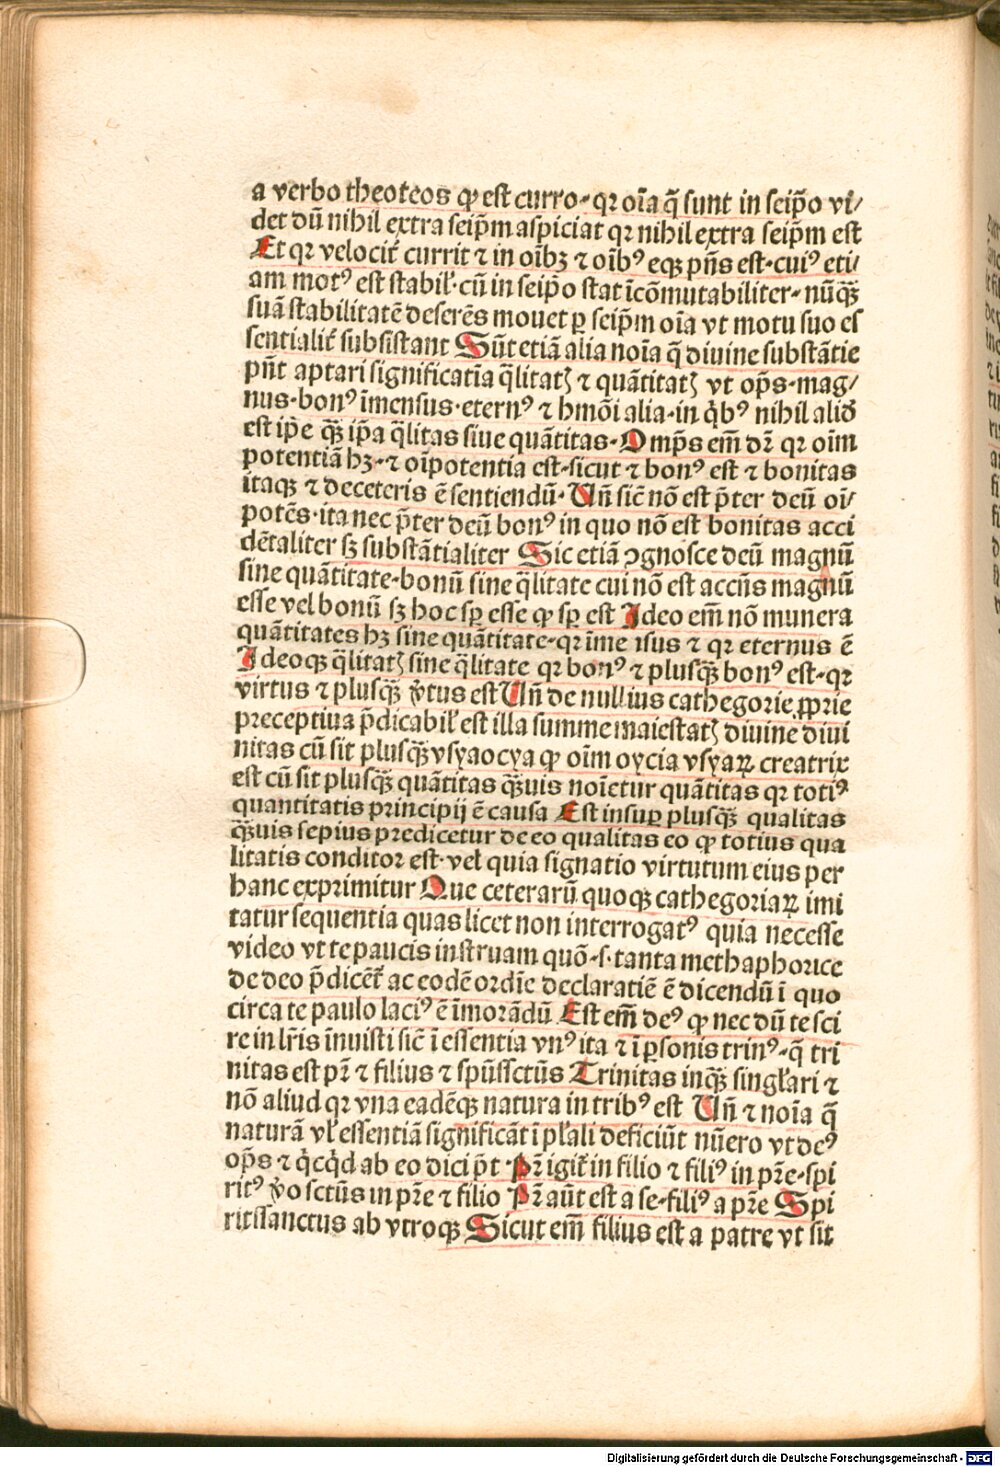 a verbo theoteos ꝙ est curro·qꝛ oīa q̄ sunt in seip̄o vi/
det dū nihil extra seip̄m aspiciat qꝛ nihil extra seip̄m est
Et qꝛ velocit̄ currit ⁊ in oībꝫ ⁊ oīb⁹ eqꝫ pn̄s est·cui⁹ eti/
am mot⁹ est stabil̓·cū in seip̄o stat īcōmutabiliter·nūq̄ꝫ
suā stabilitatē deserēs mouet ꝑ seip̄m oīa vt motu suo es
sentialit̄ subsistant Sūt etiā alia noīa q̄ diuine substātie
pn̄t aptari significatīa q̄litatꝭ ⁊ quātitatꝭ vt op̄s·mag/
nus·bon⁹ īmensus·etern⁹ ⁊ hmōi alia·in q̇b⁹ nihil aliđ
est ip̄e q̄ꝫ ip̄a q̄litas siue quātitas·Omp̄s em̄ dꝛ̄ qꝛ oīm
potentiā hꝫ·⁊ oīpotentia est·sicut ⁊ bon⁹ est ⁊ bonitas
itaqꝫ ⁊ deceteris ē sentiendū·Vn̄ sic̄ nō est p̄ter deū oī/
potēs·ita nec p̄ter deū bon⁹ in quo nō est bonitas acci
dētaliter sꝫ substātialiter Sic etiā ꝯgnosce deū magnū
sine quātitate·bonū sine q̄litate cui nō est accn̄s magnū
esse vel bonū sꝫ hoc sꝑ esse ꝙ sꝑ est Ideo em̄ nō munera
quātitates hꝫ sine quātitate·qꝛ īme ısus ⁊ qꝛ eternus ē
Ideoqꝫ q̄litatꝭ sine q̄litate qꝛ bon⁹ ⁊ plusq̄ꝫ bon⁹ est·qꝛ
virtus ⁊ plusq̄ꝫ v̊tus est Vn̄ de nullius cathegorie ꝓprie
preceptiua p̄dicabil̓ est illa summe maiestatꝭ diuine diui
nitas cū sit plusq̄ꝫ vsyaocya ꝙ oīm oycia vsyaꝝ creatrix
est cū sit plusq̄ꝫ quātitas q̄ꝫuis noīetur quātitas qꝛ toti⁹
quantitatis principij ē causa Est insuꝑ plusq̄ꝫ qualitas
q̄ꝫuis sepius predicetur de eo qualitas eo ꝙ totius qua
litatis conditor est·vel̓ quia signatio virtutum eius per
hanc exprimitur Que ceterarū quoqꝫ cathegoriaꝝ imi
tatur sequentia quas licet non interrogat⁹ quia necesse
video vt te paucis instruam quō·s·tanta methaphorice
de deo p̄dicēt̄ ac eodē ordīe declaratiē ē dicendū ī quo
circa te paulo laci⁹ ē īmorādū Est em̄ de⁹ ꝙ nec dū te sci
re in lr̄is īnuisti sic̄ ī essentia vn⁹ ita ⁊ ī ꝑsonis trin⁹·q̄ tri
nitas est pꝛ̄ ⁊ filius ⁊ spūssctūs Trinitas inq̄ꝫ singl̓ari ⁊
nō aliud qꝛ vna eadēqꝫ natura in trib⁹ est Vn̄ ⁊ noīa q̄
naturā vl̓ essentiā significāt ī pl̓ali deficiūt nūero vt de⁹
op̄s ⁊ q̇cq̇d ab eo dici p̄t Pꝛ̄ igit̄ in filio ⁊ fili⁹ in pꝛ̄e·spi
rit⁹ v̊o sctūs in pꝛ̄e ⁊ filio Pꝛ̄ aūt est a se·fili⁹ a pꝛ̄e Spi
ritssanctus ab vtroqꝫ Sicut em̄ filius est a patre vt sit
Digitalisierung gefördert durch die Deutsche Forschungsgemeinschaft · DFG